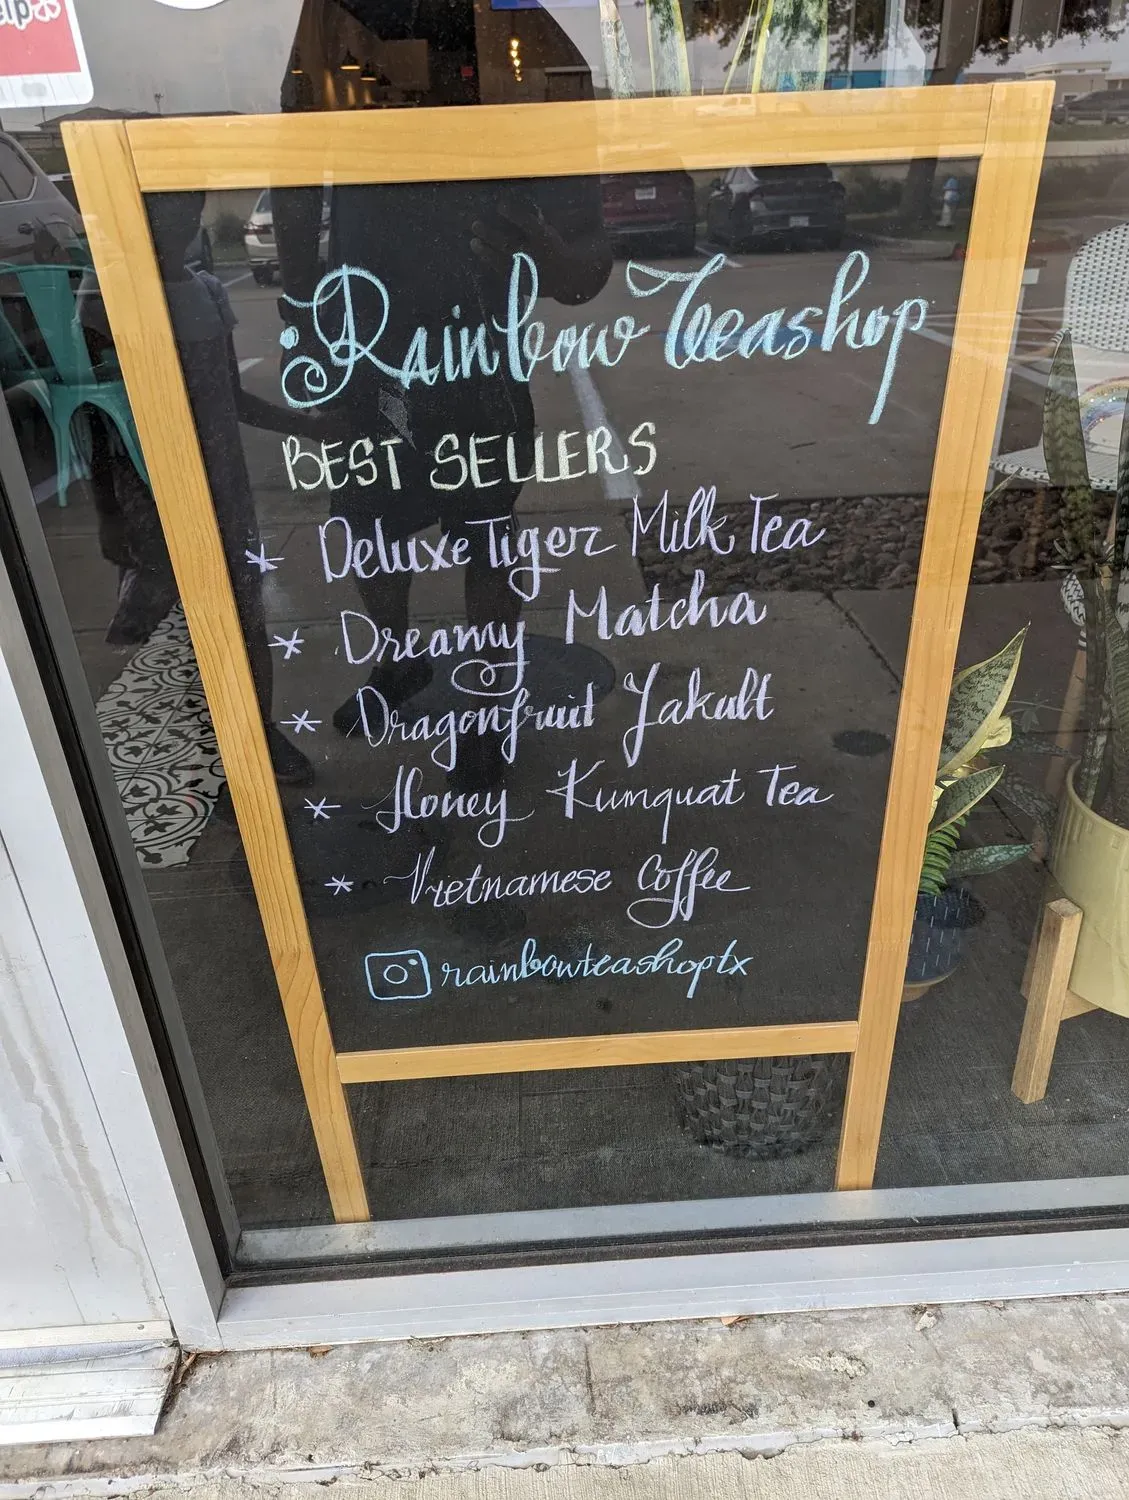 elp
Rainbow Teashop
BEST SELLERS
* Deluxe Tiger Milk Tea
* Dreamy Matcha
* Dragonfruit Yakult
* Honey Kumquat Tea
* Vietnamese Coffee
rainbowteashoptx